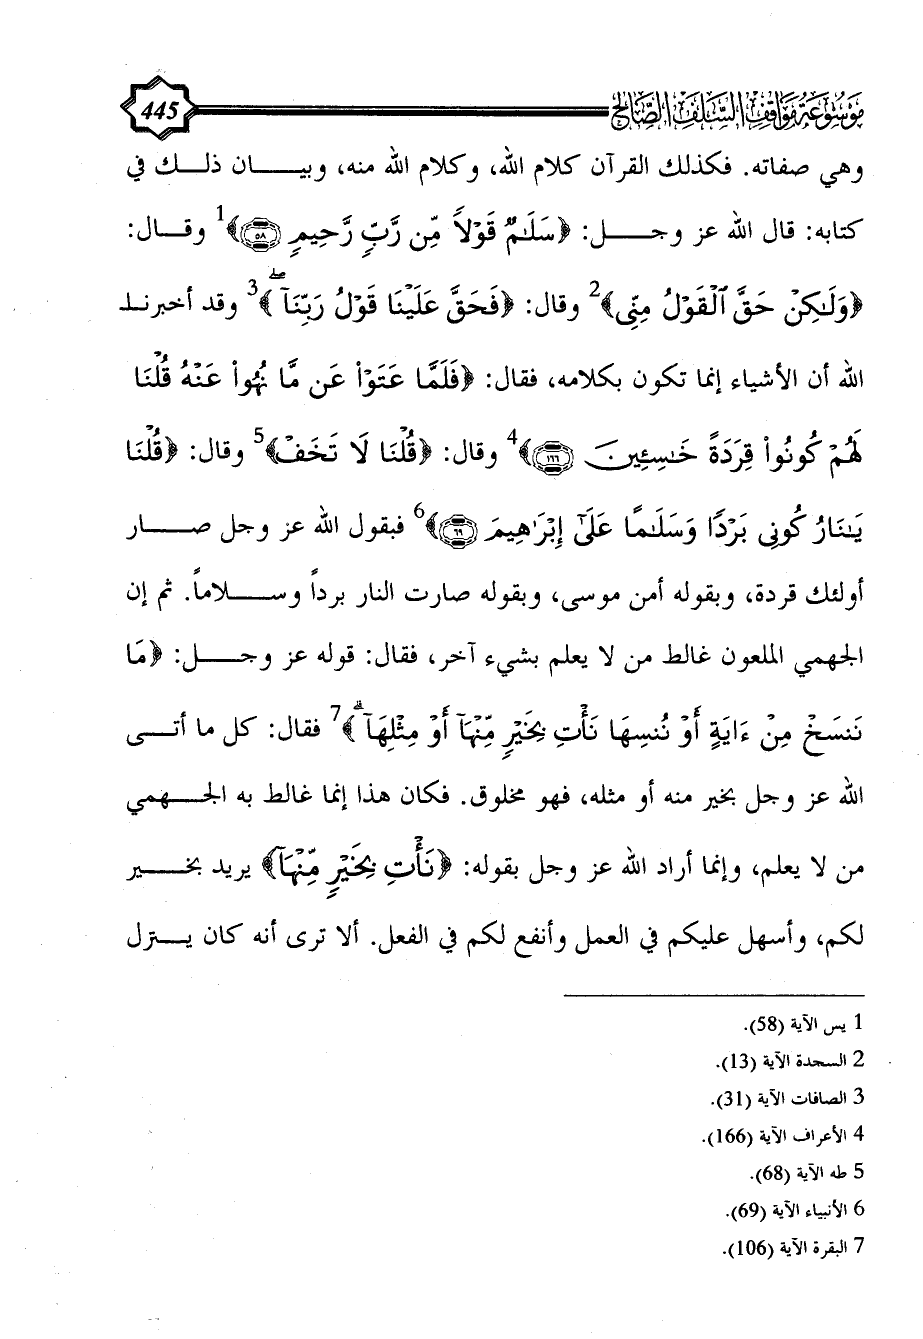 موسوعة مواقف السلف الصالح 445
وهي صفاته. فكذلك القرآن كلام الله، وكلام الله منه، وبيـــان ذلــك في
كتابه: قال الله عز وجــل: ﴿سَلَٰمٌ قَوْلًا مِّن رَّبٍّ رَّحِيمٍ ۝٥٨﴾1 وقــال:
﴿وَلَٰكِنْ حَقَّ ٱلْقَوْلُ مِنِّى﴾2 وقال: ﴿فَحَقَّ عَلَيْنَا قَوْلُ رَبِّنَآ ۖ﴾3 وقد أخبرنــا
الله أن الأشياء إنما تكون بكلامه، فقال: ﴿فَلَمَّا عَتَوْا۟ عَن مَّا نُهُوا۟ عَنْهُ قُلْنَا
لَهُمْ كُونُوا۟ قِرَدَةً خَٰسِـِٔينَ ۝١٦٦﴾4 وقال: ﴿قُلْنَا لَا تَخَفْ﴾5 وقال: ﴿قُلْنَا
يَٰنَارُ كُونِى بَرْدًا وَسَلَٰمًا عَلَىٰٓ إِبْرَٰهِيمَ ۝٦٩﴾6 فبقول الله عز وجل صــار
أولئك قردة، وبقوله أمن موسى، وبقوله صارت النار برداً وســلاماً. ثم إن
الجهمي الملعون غالط من لا يعلم بشيء آخر، فقال: قوله عز وجــل: ﴿مَا
نَنسَخْ مِنْ ءَايَةٍ أَوْ نُنسِهَا نَأْتِ بِخَيْرٍ مِّنْهَآ أَوْ مِثْلِهَآ ۗ﴾7 فقال: كل ما أتــى
الله عز وجل بخير منه أو مثله، فهو مخلوق. فكان هذا إنما غالط به الجــهمي
من لا يعلم، وإنما أراد الله عز وجل بقوله: ﴿نَأْتِ بِخَيْرٍ مِّنْهَآ﴾ يريد بخــير
لكم، وأسهل عليكم في العمل وأنفع لكم في الفعل. ألا ترى أنه كان يــنزل
1 يس الآية (58).
2 السجدة الآية (13).
3 الصافات الآية (31).
4 الأعراف الآية (166).
5 طه الآية (68).
6 الأنبياء الآية (69).
7 البقرة الآية (106).